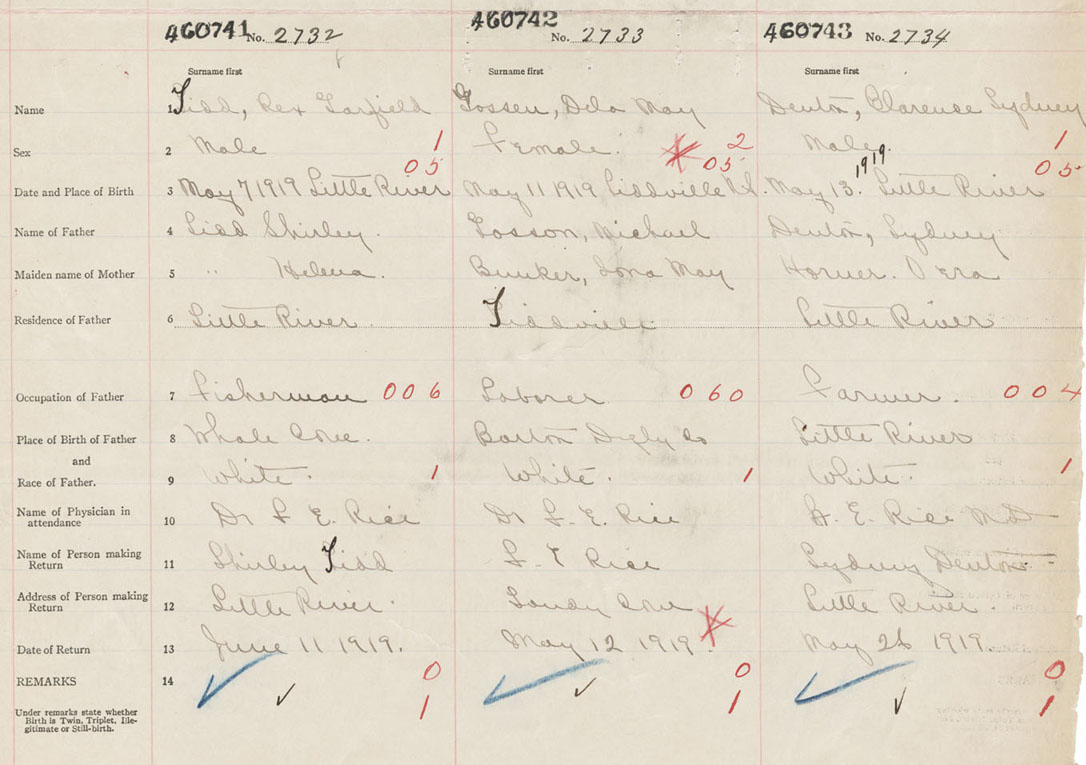 460741 No. 2732 460742 No. 2733 460743 No. 2734
Surname first Surname first Surname first
Name 1 Tidd, Rex Garfield Gosson, Dela May Denton, Clarence Sydney
Sex 2 Male 1 Female. 2 Male. 1
05 05 1919 05
Date and Place of Birth 3 May 7 1919 Little River May 11 1919 Tiddville N.S. May 13. Little River
Name of Father 4 Tidd Shirley. Gosson, Michael Denton, Sydney
Maiden name of Mother 5 " Helena. Bunker, Iona May Horner.
Residence of Father 6 Little River. Tiddville Little River
Occupation of Father 7 Fisherman 006 Laborer 060 Farmer. 004
Place of Birth of Father 8 Whale Cove. Barton Digby Co Little River
and
Race of Father. 9 White. 1 White. 1 White. 1
Name of Physician in
attendance 10 Dr F. E. Rice Dr F. E. Rice F. E. Rice M.D
Name of Person making
Return 11 Shirley Tidd F. E Rice Sydney Denton
Address of Person making
Return 12 Little River. Sandy Cove Little River.
Date of Return 13 June 11 1919. May 12 1919. May 26 1919.
REMARKS 14 0 0 0
Under remarks state whether
Birth is Twin, Triplet, Ille-
gitimate or Still-birth. 1 1 1